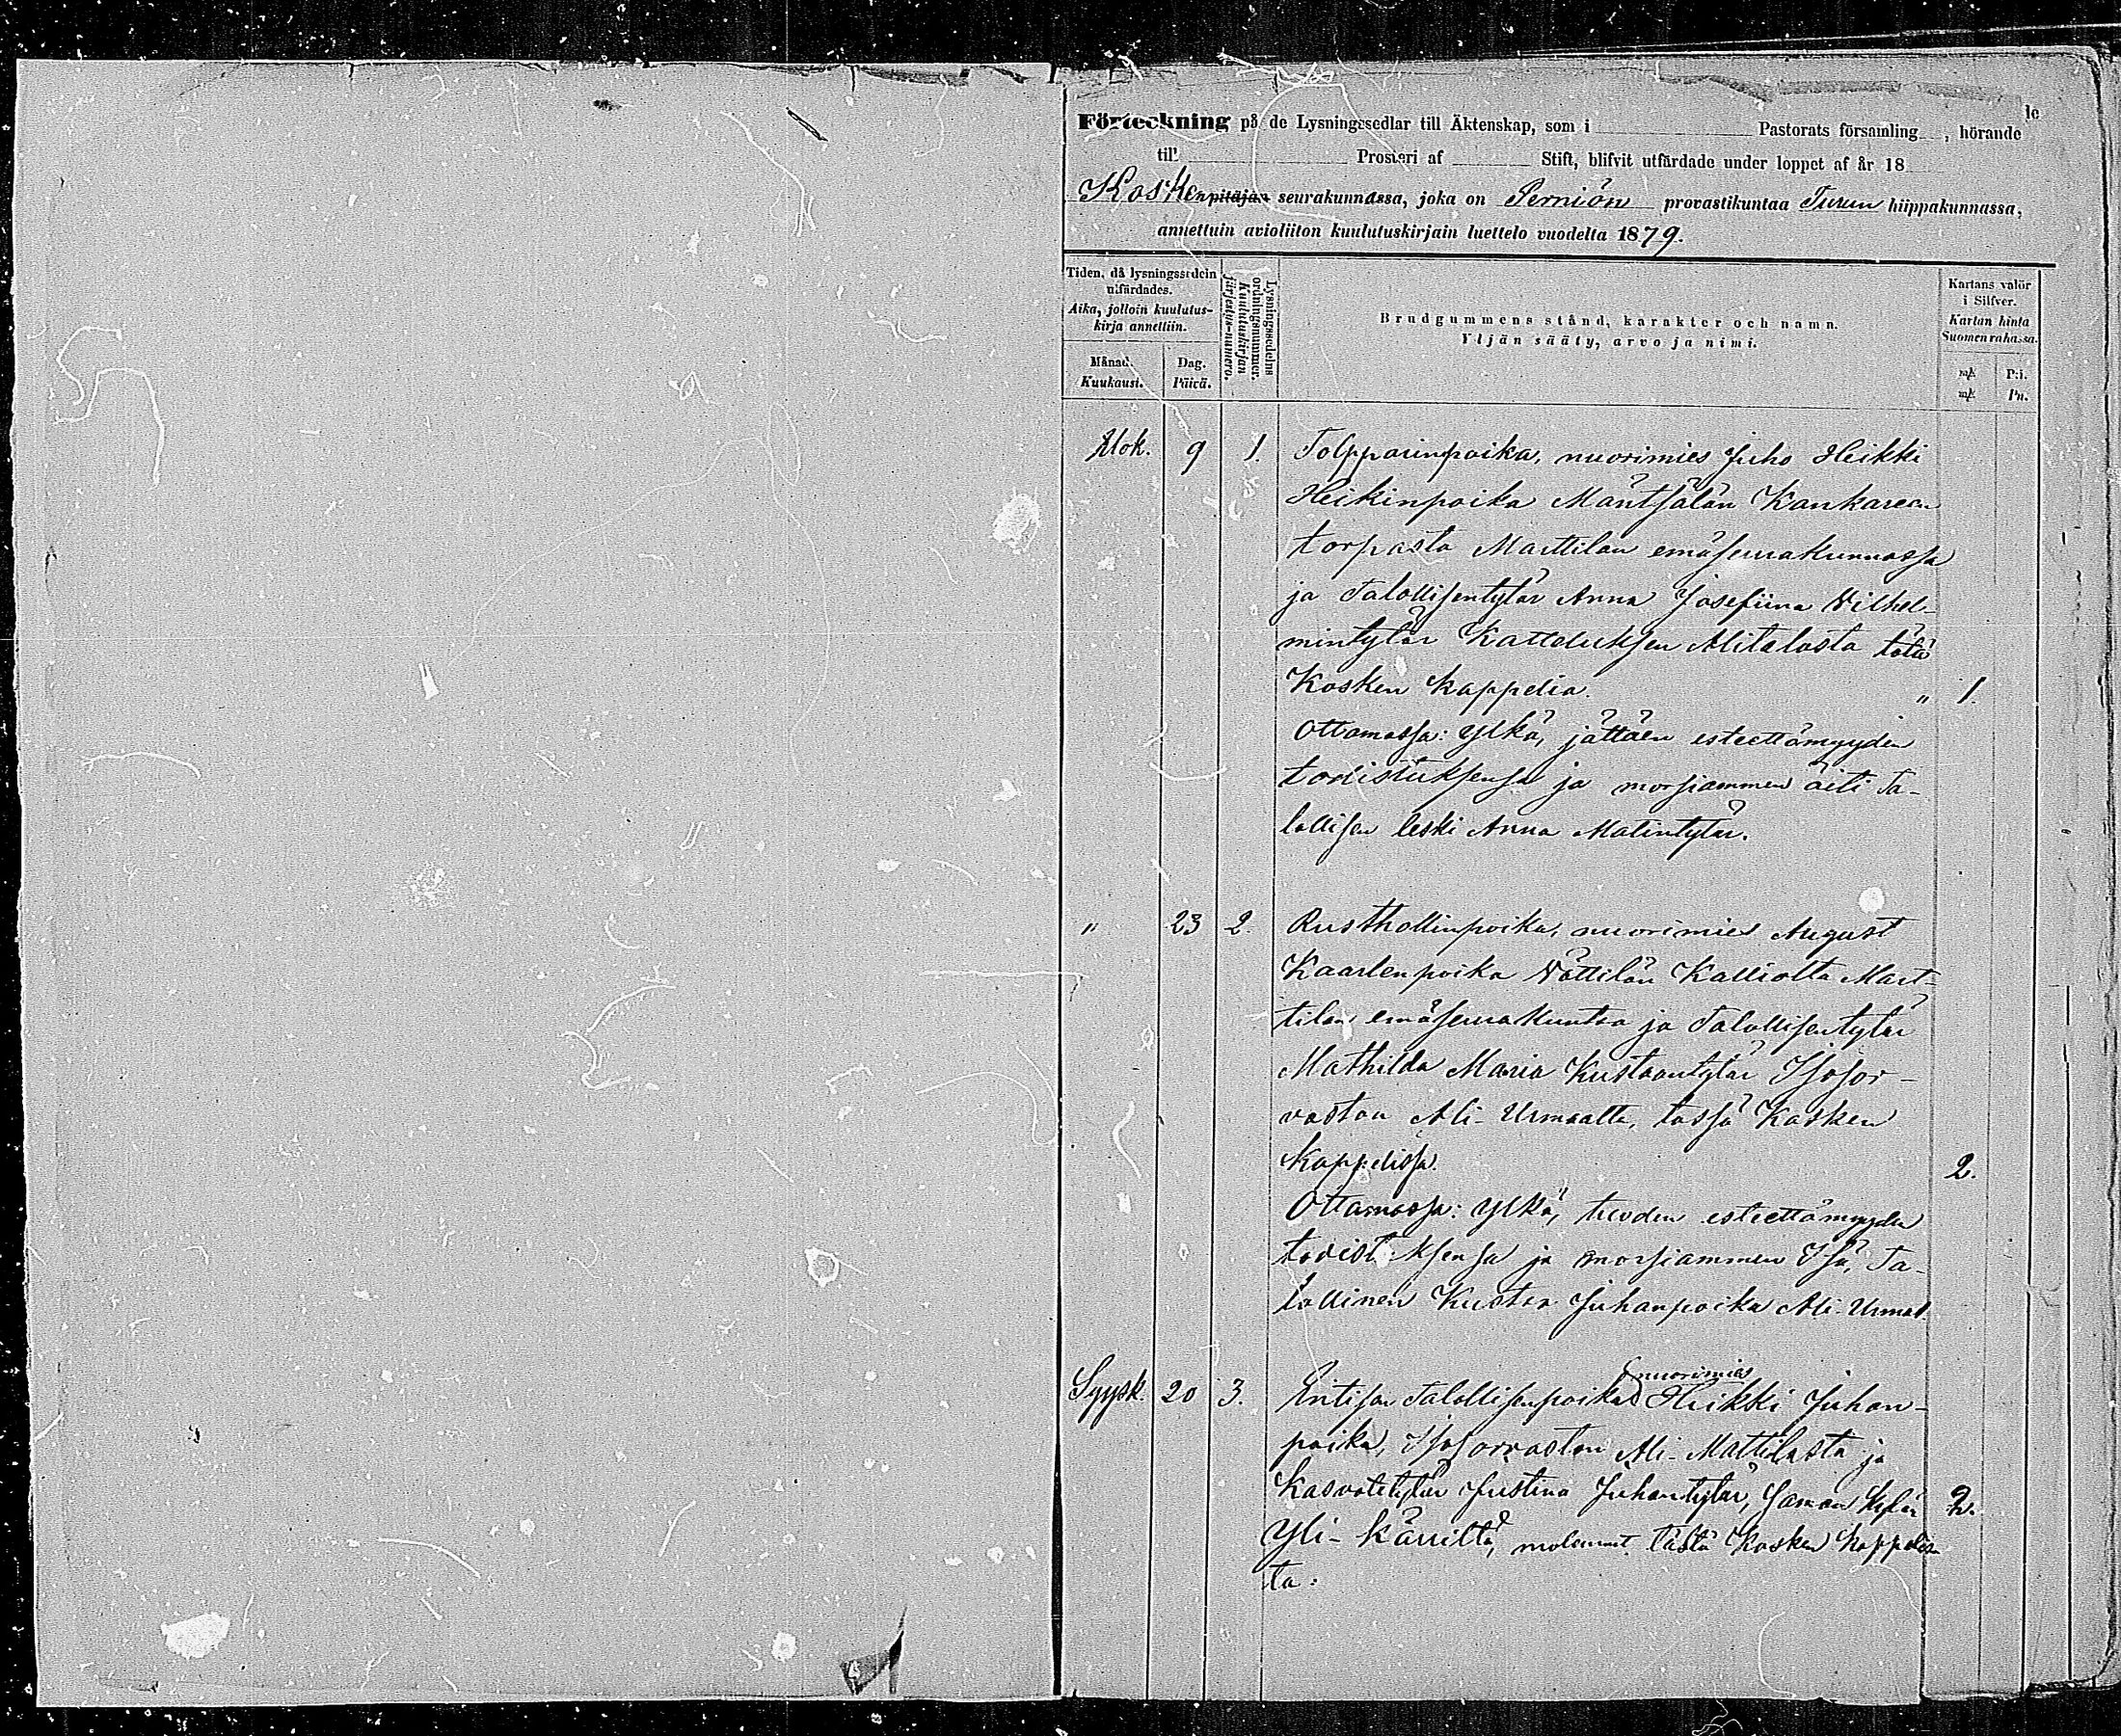 Förteckning på de Lysningssedlar till Äktenskap, som i Pastorats församling, hörande
till Prosteri af Stift, blifvit utfärdade under loppet af år 18
Kosken pitäjän seurakunnassa, joka on Perniön provastikuntaa Turun hiippakunnassa,
annettuin avioliiton kuulutuskirjain luettelo vuodelta 1879.
Tiden, då lysningssedeln
utfärdades.
Aika, jolloin kuulutus-
kirja annettiin.
Månad.
Kuukausi.
Dag.
Päivä.
Lysningssedelns
ordningsnummer.
Kuulutuskirjan
järjestys-numero.
Brudgummens stånd, karakter och namn.
Yljän sääty, arvo ja nimi.
Kartans valör
i Silfver.
Kartan hinta
Suomen rahassa.
mk P:i.
mk Pn.
Elok. 9 1. Torpparinpoika, nuorimies Juho Heikki
Heikinpoika Mäntsälän Kankareen
torpasta Marttilan emäseurakunnassa
ja Talollisentytär Anna Josefiina Vilhel-
mintytär Katteluksen Alitalosta tätä
Kosken kappelia. " 1.
Ottamassa: Ylkä, jättäen esteettömyyden
todistuksensa ja morsiammen äiti Ta-
lollisen leski Anna Matintytär.
" 23 2. Rusthollinpoika, nuorimies August
Kaarlenpoika Vättilän Kalliolta Mart-
tilan emäseurakuntaa ja Talollisentytär
Mathilda Maria Kustaantytär Isosor-
vaston Ali-Urmaalta, tässä Kosken
Kappelissa. 2.
Ottamassa: Ylkä, tuoden esteettömyyden
todistuksensa ja morsiammen Isä, Ta-
lollinen Kustaa Juhanpoika Ali-Urmas.
nuorimies
Syysk. 20 3. Entisen Talollisenpoika Heikki Juhan-
poika, Isosorvaston Ali-Mattilasta ja
Kasvatetytär Justina Juhantytär, saman kylän 2.
Yli-Kärriltä, molemmat tästä Kosken kappelis
ta: